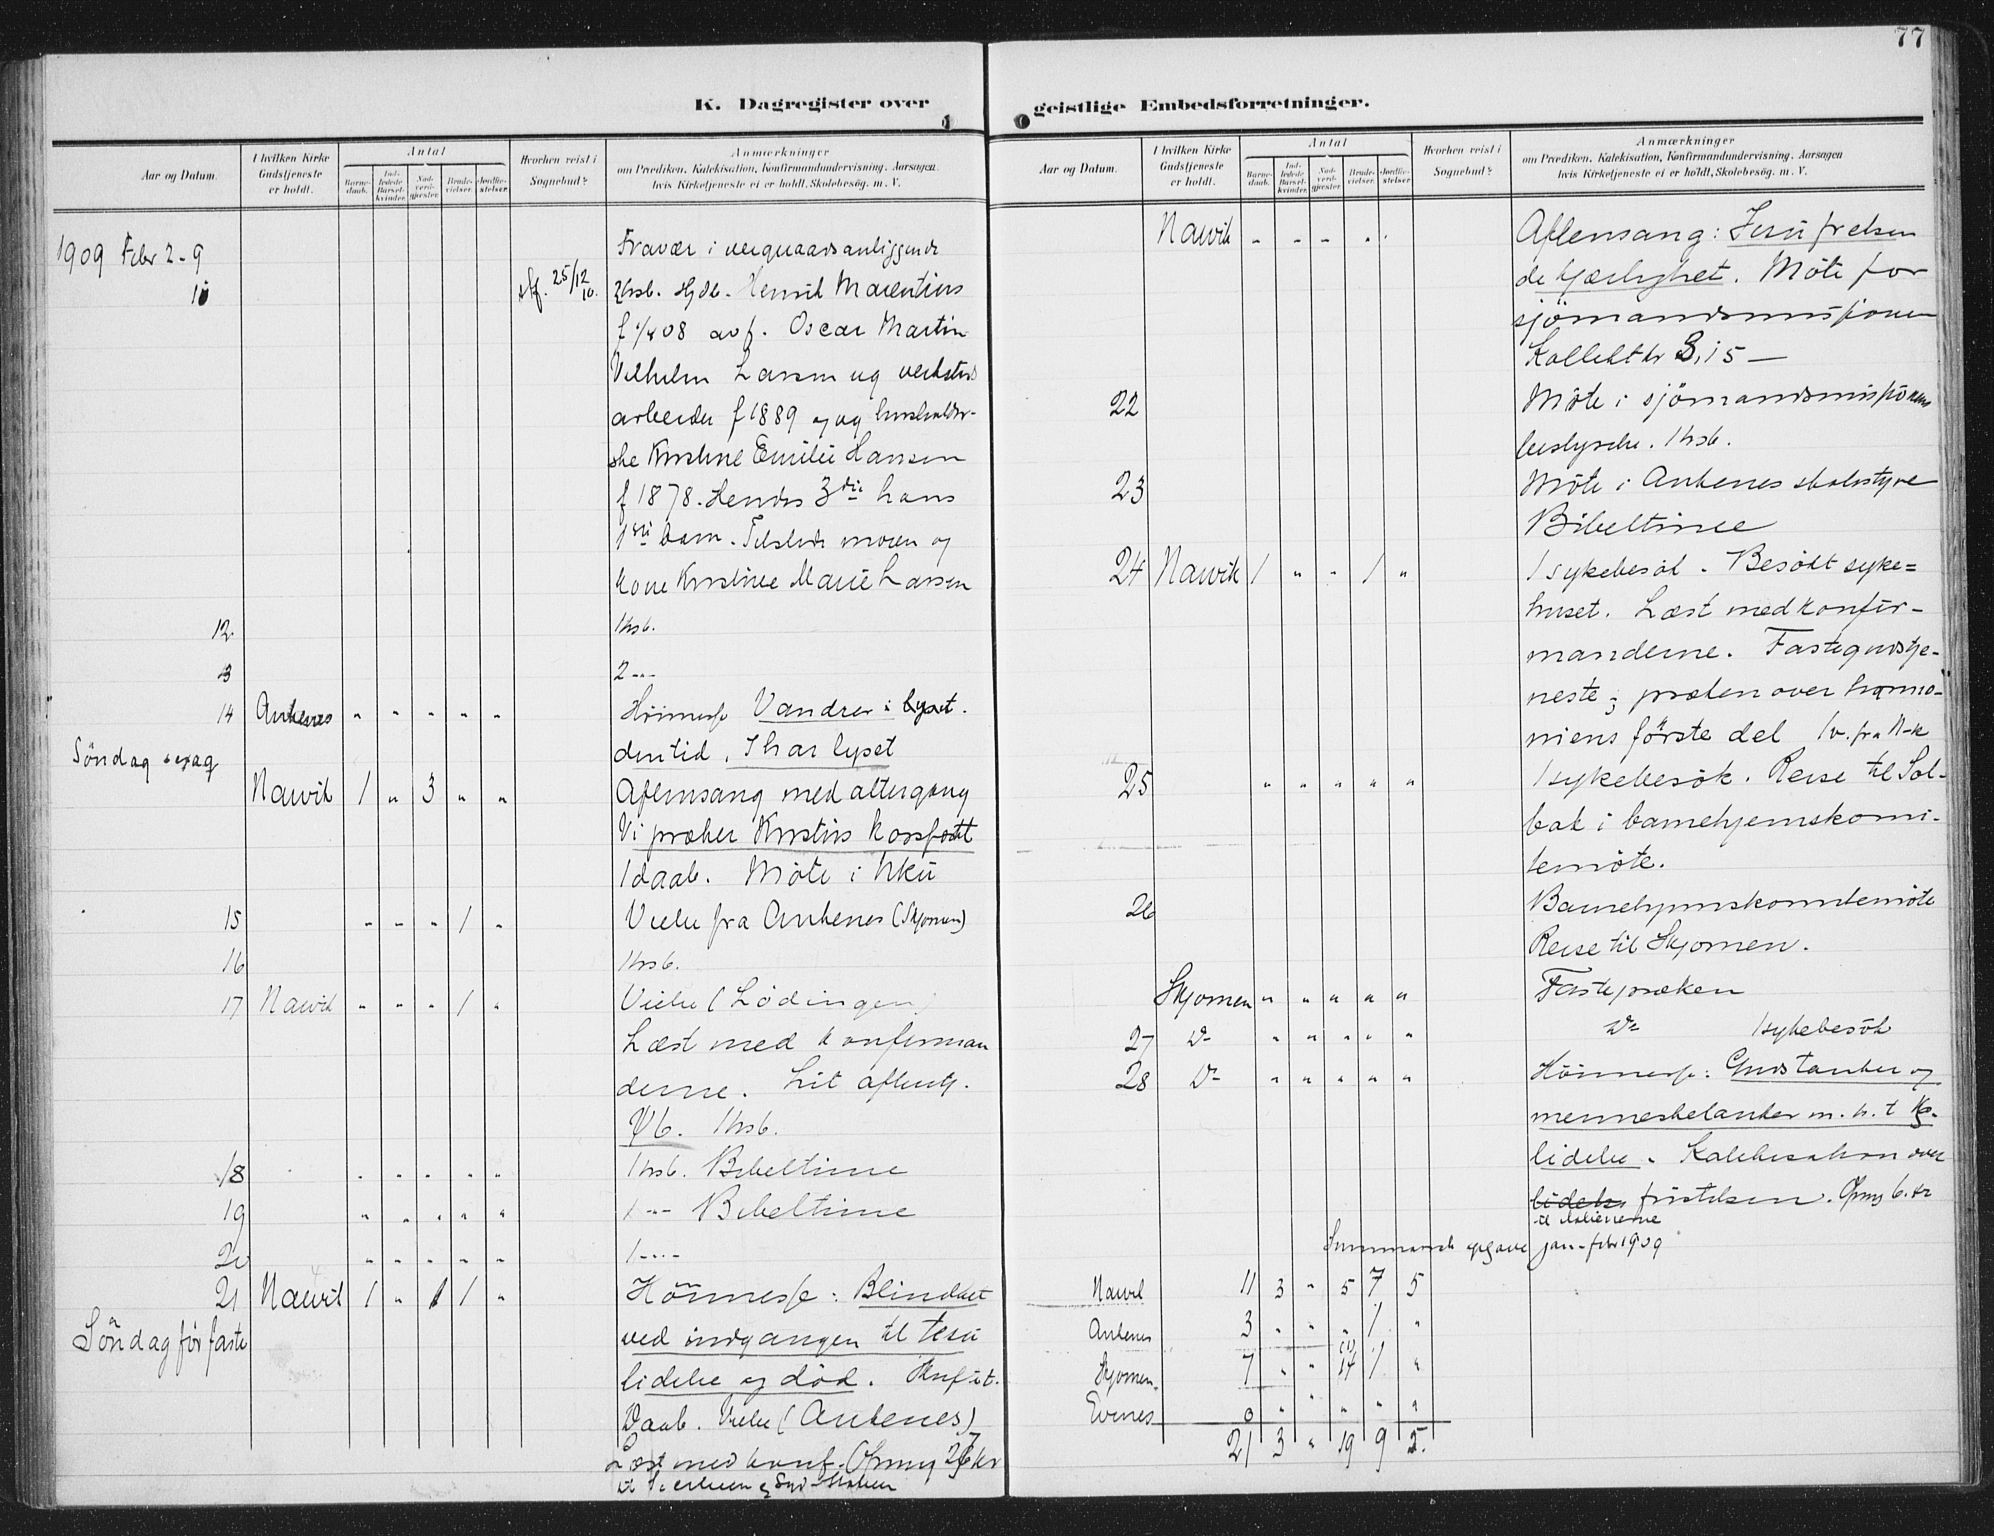 77
K. Dagregister over
geistlige Embedsforretninger.
Aar og Datum.
I hvilken Kirke Gudstjeneste er holdt.
Antal
Barnedaab.
Indledede Barselkvinder.
Nadverdgjester.
Brudevielser.
Jordfæstelser.
Hvorhen reist i Sognebud?
Anmærkninger
om Prædiken, Katekisation, Konfirmandundervisning, Aarsagen
hvis Kirketjeneste ei er holdt, Skolebesøg. m. V.
1909 Febr 2-9 Fravær i
25/12 10. hsb. Hjdb. Henrik Marentius
08 av f. Oscar Martin
Vilhelm Larsen ug verksteds
arbeider f 1889 og ug husholder-
ske Kirstine Emilie Hansen
f 1878. Hendes 3die hans
1ste barn. Tilstede moren og
kone Kirstine Marie Larsen
12 1 hsb.
2 -"-
14 Ankenes " " " " " Höimesse Vandrer i lyset.
Söndag sexag
den tid. I har lyset
Narvik 1 " 3 " " Aftensang med altergang
Vi præker Kristus korsfæstet
1 daab. Möte i
15 " " " 1 " Vielse fra Ankenes (Skjomen)
16 1 hsb.
17 Narvik " " " 1 " Vielse (Lödingen)
Læst med konfirman
derne. Lit aftensg.
1 hsb.
18 " " " " " 1 hsb. Bibeltime
19 " " " " " 1 -"- Bibeltime
20 " " " " " 1 -"-
21 Narvik 1 " 1 1 " Höimesse: Blindhet
Söndag för faste
ved indgangen til Jesu
lidelse og död.
Daab. Vielse (Ankenes)
Læst med konf. Ofring 26 kr
Aar og Datum.
I hvilken Kirke Gudstjeneste er holdt.
Antal
Barnedaab.
Indledede Barselkvinder.
Nadverdgjester.
Brudevielser.
Jordfæstelser.
Hvorhen reist i Sognebud?
Anmærkninger
om Prædiken, Katekisation, Konfirmandundervisning, Aarsagen
hvis Kirketjeneste ei er holdt, Skolebesøg. m. V.
Narvik " " " " " Aftensang: Jesu frelsen
de kjærlighet. Möte for
sjömandsmisjonen
Kollekt kr 8,15 —
22 Möte i sjömandsmisjonens
bestyrelse. 1 hsb.
23 Möte i Ankenes skolestyre
Bibeltime
24 Narvik 1 " " 1 " 1 sykebesök. Besökt syke=
huset. Læst med konfir-
manderne. Fastegudstje-
neste; præken over
niens förste del 1 v. fra N-k
25 " " " " " 1 sykebesök. Reise til Sol-
bak i barnehjemskomi-
temöte.
26 Barnehjemskomitemöte
Reise til Skjomen.
Skjomen " " " " " Fastepræken
27 D- " " " " " Do 1 sykebesök
28 D- " " " " " Höimesse: Guds tanker og
mennesketanker m. h. t
lidelse. Katekisation over
lidelse fristelsen. Ofring 6. kr
Summarisk opgave jan-febr 1909
Narvik 11 3 " 5 7 5
Ankenes 3 " " " 1 "
Skjomen 7 " " 14 1 "
Evenes 0 " " " " "
21 3 " 19 9 5.